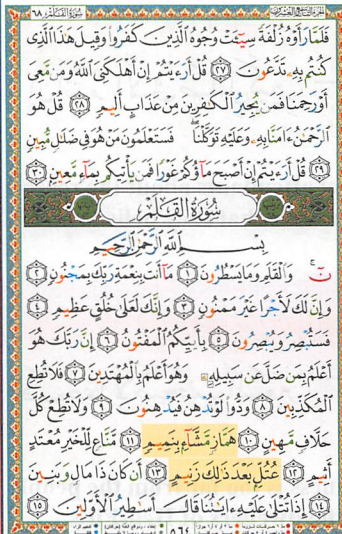 سورة القلم ٦٨
فَلَمَّا رَأَوْهُ زُلْفَةً سِيٓـَٔتْ وُجُوهُ ٱلَّذِينَ كَفَرُوا۟ وَقِيلَ هَـٰذَا ٱلَّذِى
كُنتُم بِهِۦ تَدَّعُونَ ٢٧ قُلْ أَرَءَيْتُمْ إِنْ أَهْلَكَنِىَ ٱللَّهُ وَمَن مَّعِىَ
أَوْ رَحِمَنَا فَمَن يُجِيرُ ٱلْكَـٰفِرِينَ مِنْ عَذَابٍ أَلِيمٍ ٢٨ قُلْ هُوَ
ٱلرَّحْمَـٰنُ ءَامَنَّا بِهِۦ وَعَلَيْهِ تَوَكَّلْنَا ۖ فَسَتَعْلَمُونَ مَنْ هُوَ فِى ضَلَـٰلٍ مُّبِينٍ
٢٩ قُلْ أَرَءَيْتُمْ إِنْ أَصْبَحَ مَآؤُكُمْ غَوْرًا فَمَن يَأْتِيكُم بِمَآءٍ مَّعِينٍۭ ٣٠
سُورَةُ القَلَمِ
بِسْمِ ٱللَّهِ ٱلرَّحْمَـٰنِ ٱلرَّحِيمِ
نٓ ۚ وَٱلْقَلَمِ وَمَا يَسْطُرُونَ ١ مَآ أَنتَ بِنِعْمَةِ رَبِّكَ بِمَجْنُونٍ ٢
وَإِنَّ لَكَ لَأَجْرًا غَيْرَ مَمْنُونٍ ٣ وَإِنَّكَ لَعَلَىٰ خُلُقٍ عَظِيمٍ ٤
فَسَتُبْصِرُ وَيُبْصِرُونَ ٥ بِأَييِّكُمُ ٱلْمَفْتُونُ ٦ إِنَّ رَبَّكَ هُوَ
أَعْلَمُ بِمَن ضَلَّ عَن سَبِيلِهِۦ وَهُوَ أَعْلَمُ بِٱلْمُهْتَدِينَ ٧ فَلَا تُطِعِ
ٱلْمُكَذِّبِينَ ٨ وَدُّوا۟ لَوْ تُدْهِنُ فَيُدْهِنُونَ ٩ وَلَا تُطِعْ كُلَّ
حَلَّافٍ مَّهِينٍ ١٠ هَمَّازٍ مَّشَّآءٍۭ بِنَمِيمٍ ١١ مَّنَّاعٍ لِّلْخَيْرِ مُعْتَدٍ
أَثِيمٍ ١٢ عُتُلٍّۭ بَعْدَ ذَٰلِكَ زَنِيمٍ ١٣ أَن كَانَ ذَا مَالٍ وَبَنِينَ
١٤ إِذَا تُتْلَىٰ عَلَيْهِ ءَايَـٰتُنَا قَالَ أَسَـٰطِيرُ ٱلْأَوَّلِينَ ١٥
٥٦٤